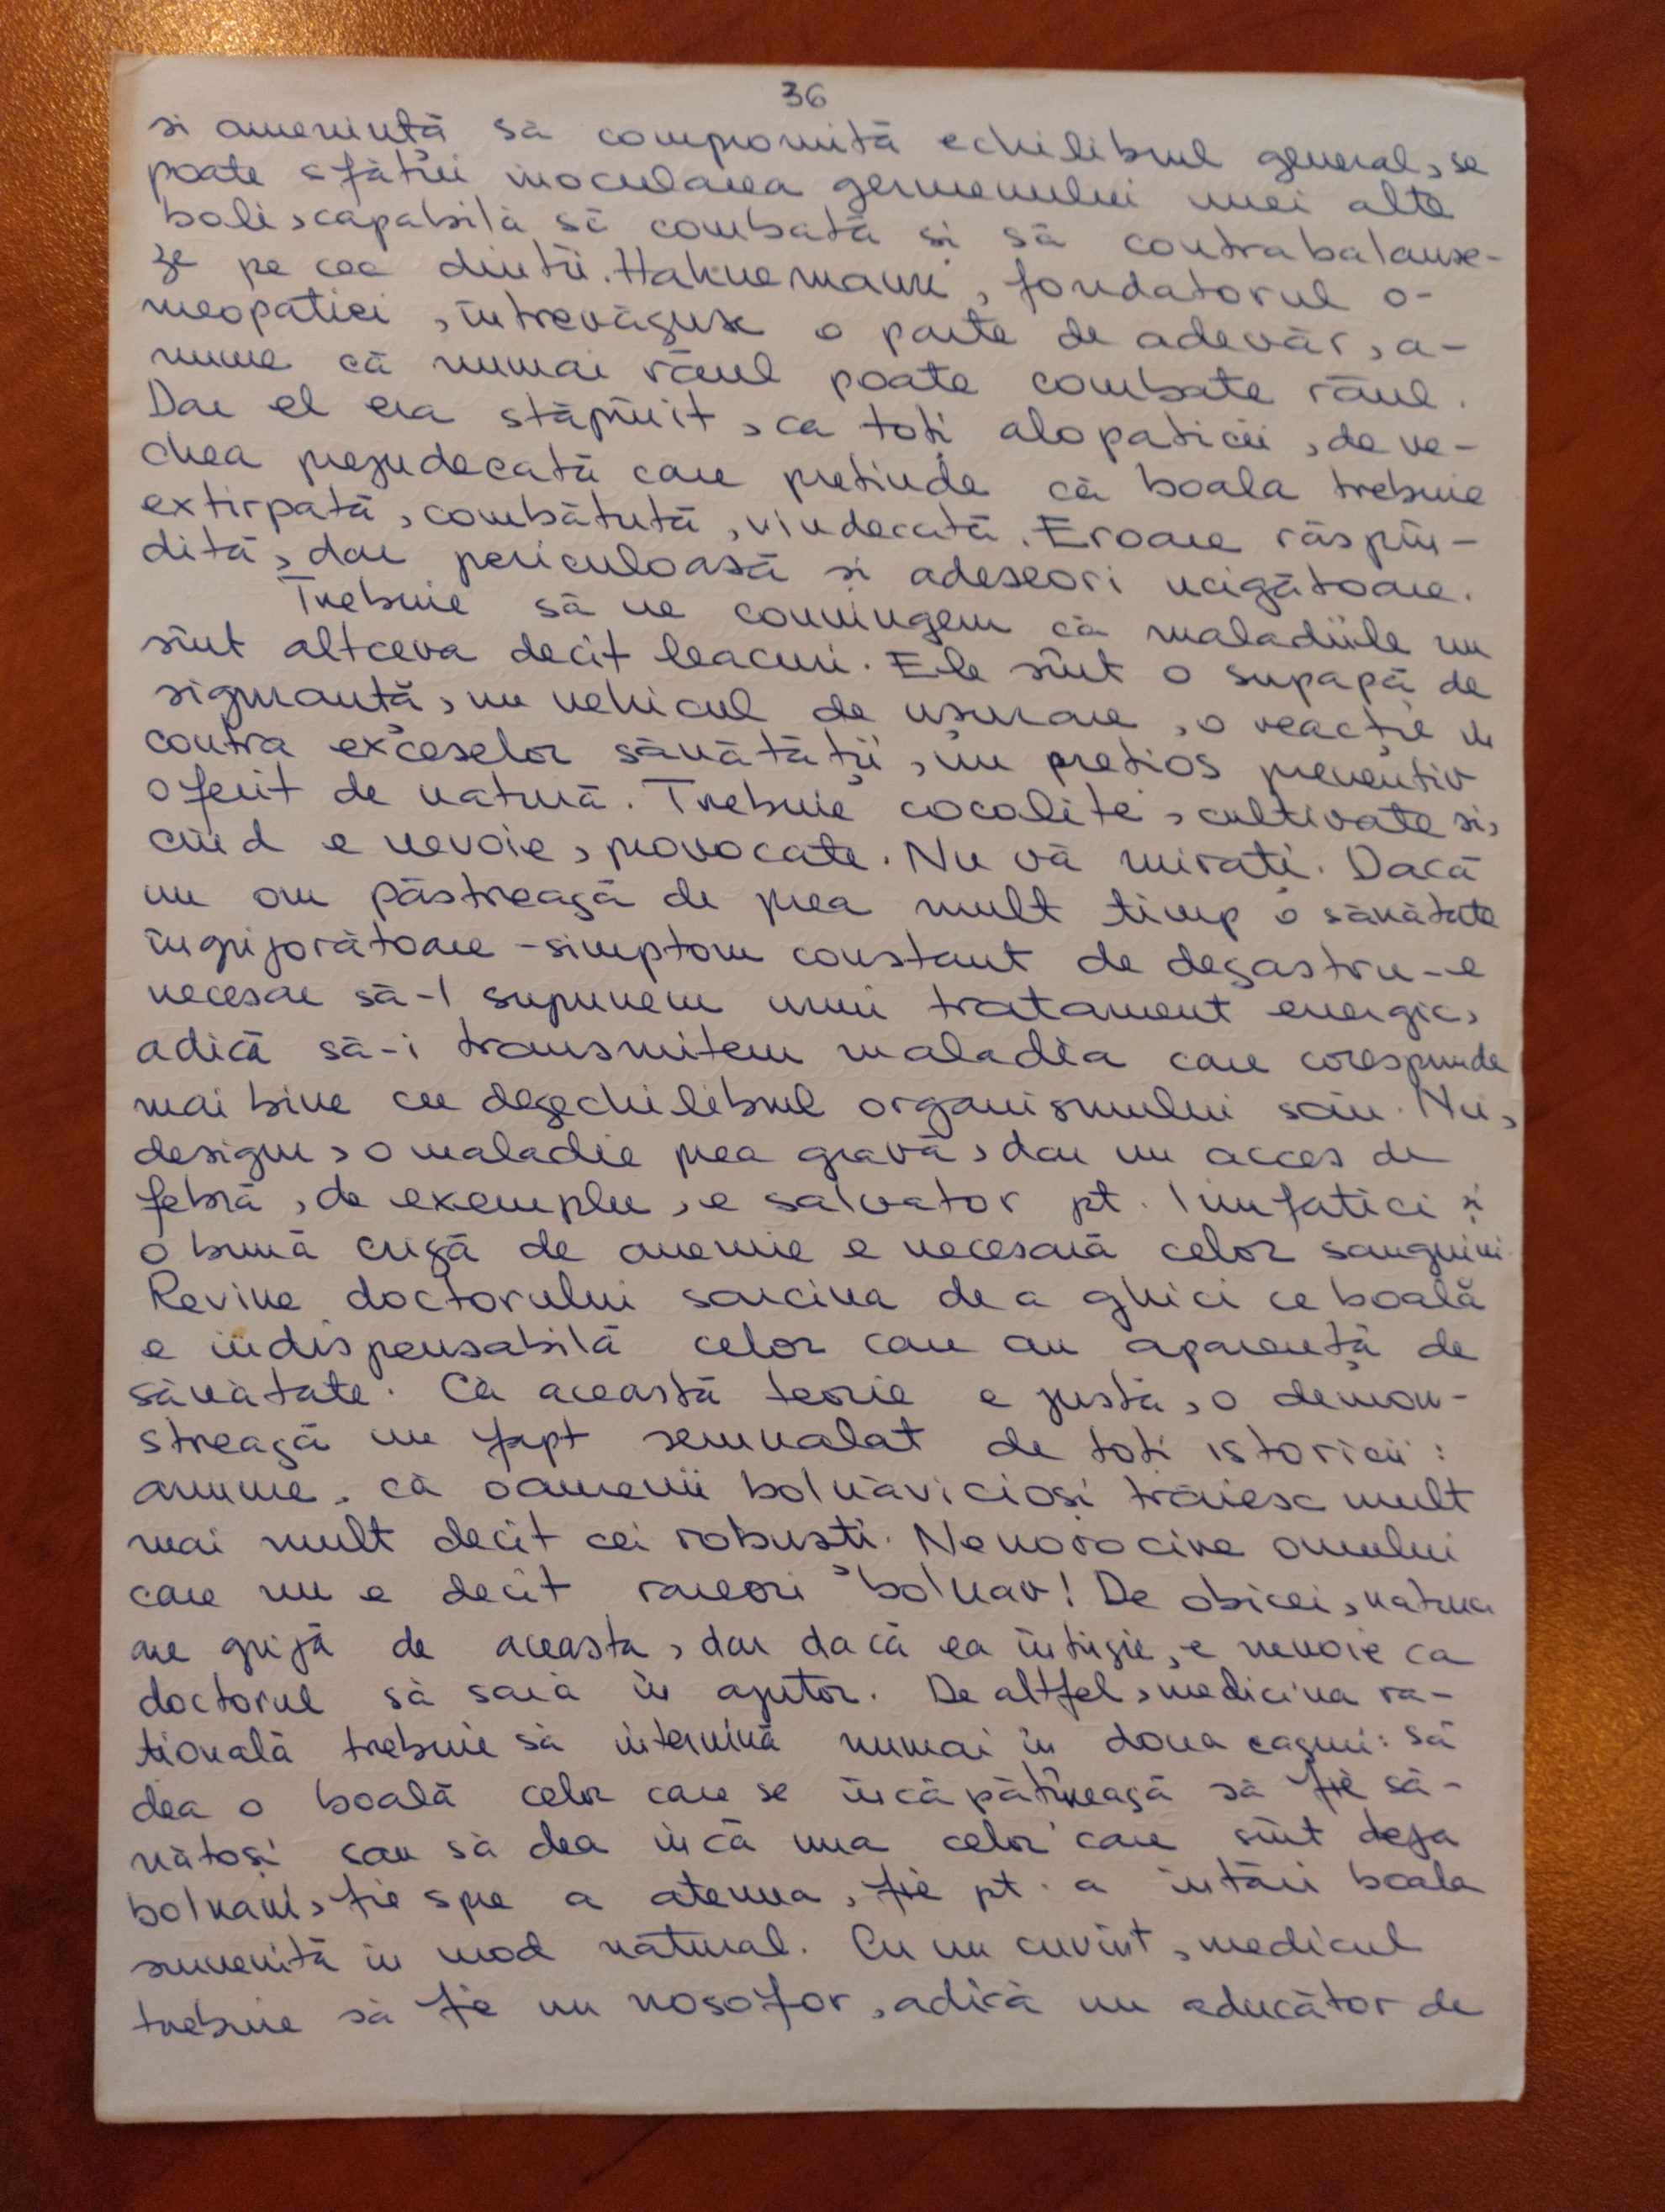 36
și amenință să compromită echilibrul general, se
poate sfătui inocularea germenului unei alte
boli, capabilă să combată și să contrabalanse-
ze pe cea dintîi. Hahnemann, fondatorul o-
meopatiei, întrevăzuse o parte de adevăr, a-
nume că numai răul poate combate răul.
Dar el era stăpînit, ca toți alopaticii, de ve-
chea prejudecată care pretinde că boala trebuie
extirpată, combătută, vindecată. Eroare răspîn-
dită, dar periculoasă și adeseori ucigătoare.
Trebuie să ne convingem că maladiile nu
sînt altceva decît leacuri. Ele sînt o supapă de
siguranță, un vehicul de ușurare, o reacție în
contra exceselor sănătății, un prețios preventiv
oferit de natură. Trebuie cocolite, cultivate si,
cînd e nevoie, provocate. Nu vă mirați. Dacă
un om păstrează de prea mult timp o sănătate
îngrijorătoare - simptom constant de dezastru - e
necesar să-l supunem unui tratament energic,
adică să-i transmitem maladia care corespunde
mai bine cu dezechilibrul organismului său. Nu,
desigur, o maladie prea gravă, dar un acces de
febră, de exemplu, e salvator pt. limfatici și
o bună criză de anemie e necesară celor sanguini.
Revine doctorului sarcina de a ghici ce boală
e indispensabilă celor care au aparență de
sănătate. Că această teorie e justă, o demon-
strează un fapt semnalat de toți istoricii:
anume, că oamenii bolnăvicioși trăiesc mult
mai mult decît cei robuști. Nenorocire omului
care nu e decît rareori bolnav! De obicei, natura
are grijă de aceasta, dar dacă ea întîrzie, e nevoie ca
doctorul să sară în ajutor. De altfel, medicina ra-
țională trebuie să intervină numai în doua cazuri: să
dea o boală celor care se încăpățînează să fie să-
nătoși sau să dea încă una celor care sînt deja
bolnavi, fie spre a atenua, fie pt. a întări boala
survenită în mod natural. Cu un cuvînt, medicul
trebuie să fie un nosofor, adică un aducător de